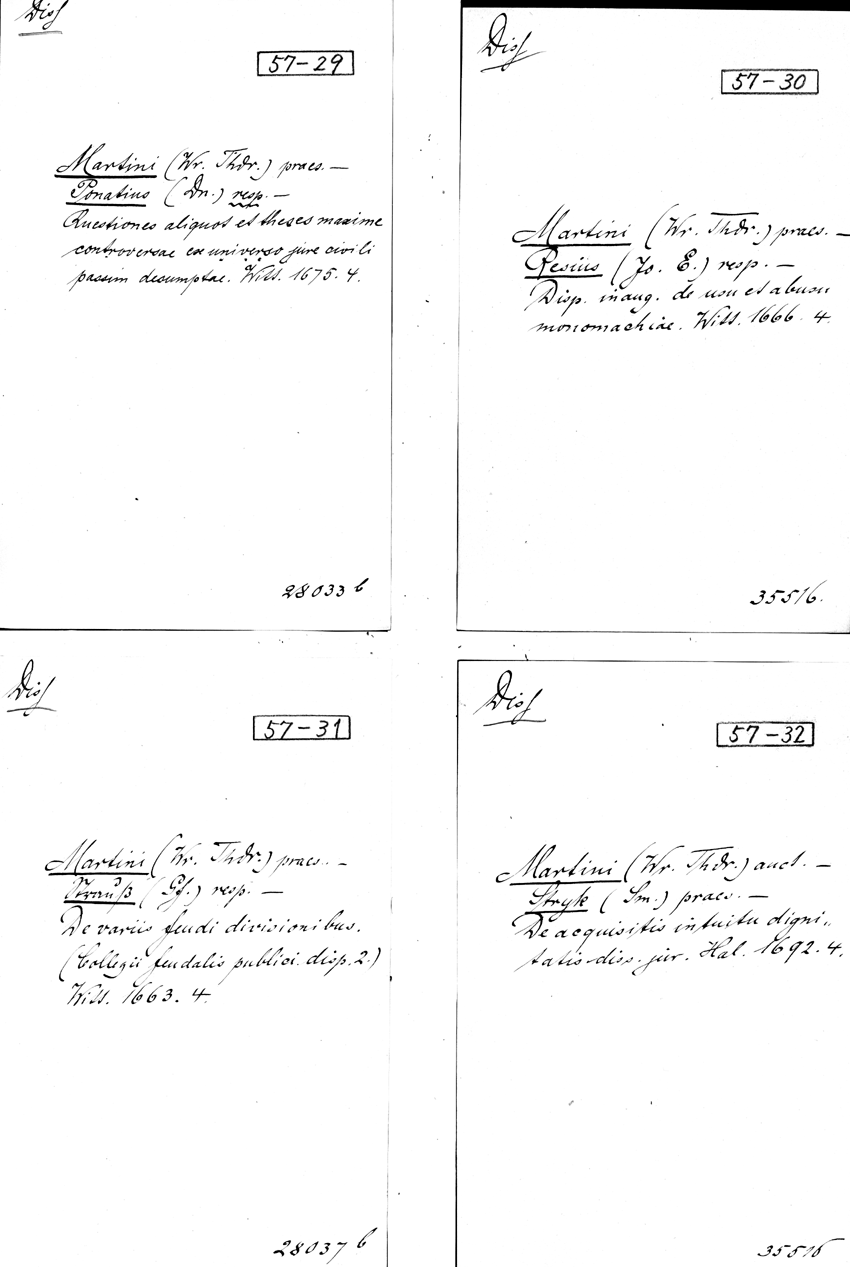 Diss
57-29
Martini (Wr. Thdr.) praes. —
Ponatius (Dn.) resp. —
Quaestiones aliquot et theses maxime
controversae ex universo jure civili
passim desumptae. Witt. 1675. 4.
28033 b
Diss
57-30
Martini (Wr. Thdr.) praes. —
Resius (Jo. E.) resp. —
Disp. inaug. de usu et abusu
monomachiae. Witt. 1666. 4.
35516.
Diss
57-31
Martini (Wr. Thdr.) praes. —
Strauß (Gf.) resp. —
De variis feudi divisionibus.
(Collegii feudalis publici disp. 2.)
Witt. 1663. 4.
28037 b
Diss
57-32
Martini (Wr. Thdr.) auct. —
Stryk (Sm.) praes. —
De acquisitis intuitu digni„
tatis diss. jur. Hal. 1692. 4.
35516